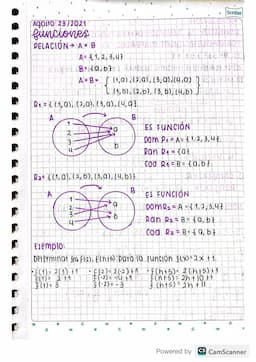 Agosto 23/2021
funciones
RELACIÓN → A × B
A = {1, 2, 3, 4}
B = {a, b}
A × B = { (1,a), (2,a), (3,a), (4,a)
(1,b), (2,b), (3,b), (4,b) }
R1 = { (1,a), (2,a), (3,a), (4,a) }
A B
1 2 3 4 a b
ES FUNCIÓN
Dom R1 = A = {1, 2, 3, 4}
Ran R1 = {a}
Cod R1 = B = {a, b}
R2 = { (1,a), (2,b), (3,a), (4,b) }
A B
1 2 3 4 a b
ES FUNCIÓN
Dom R2 = A = {1, 2, 3, 4}
Ran R2 = B = {a, b}
Cod R2 = B = {a, b}
Ejemplo:
Determinar f(h+5) Para la función f(x) = 2x + 1
f(1) = 2(1) + 1
f(1) = 2 + 1
f(1) = 3
f(-2) = -3
f(h+5) = 2(h+5) + 1
f(h+5) = 2h + 10 + 1
f(h+5) = 2h + 11
Powered by CS CamScanner